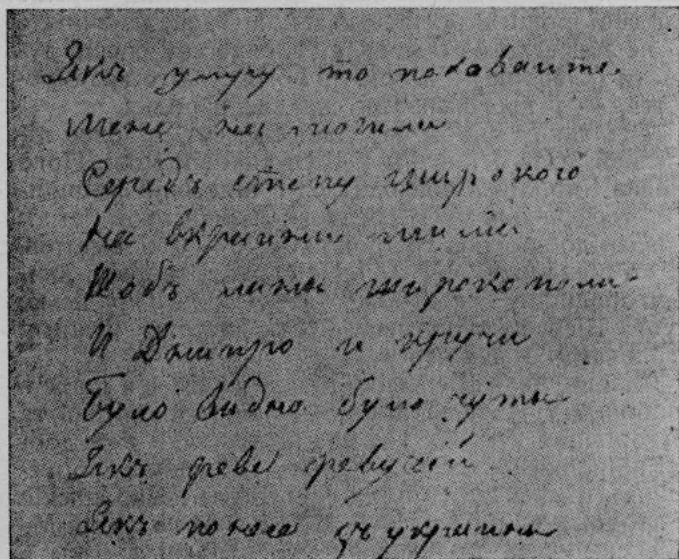 Якъ умру то поховайте.
Мене на могили
Середъ степу широкого
На вкраини мили
Щобъ ланы широкополи
И Днипро и кручи
Було видно було чуты
Якъ реве ревучій
Якъ понесе зъ украины